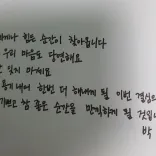 게나 힘든 순간이 찾아옵니다
우리 마음도 당연해요
잊지 마세요
용기 내어 한번 더 해내게 될 이번 결심으
기쁘고 참 좋은 순간을 만끽하게 될 것입니
박